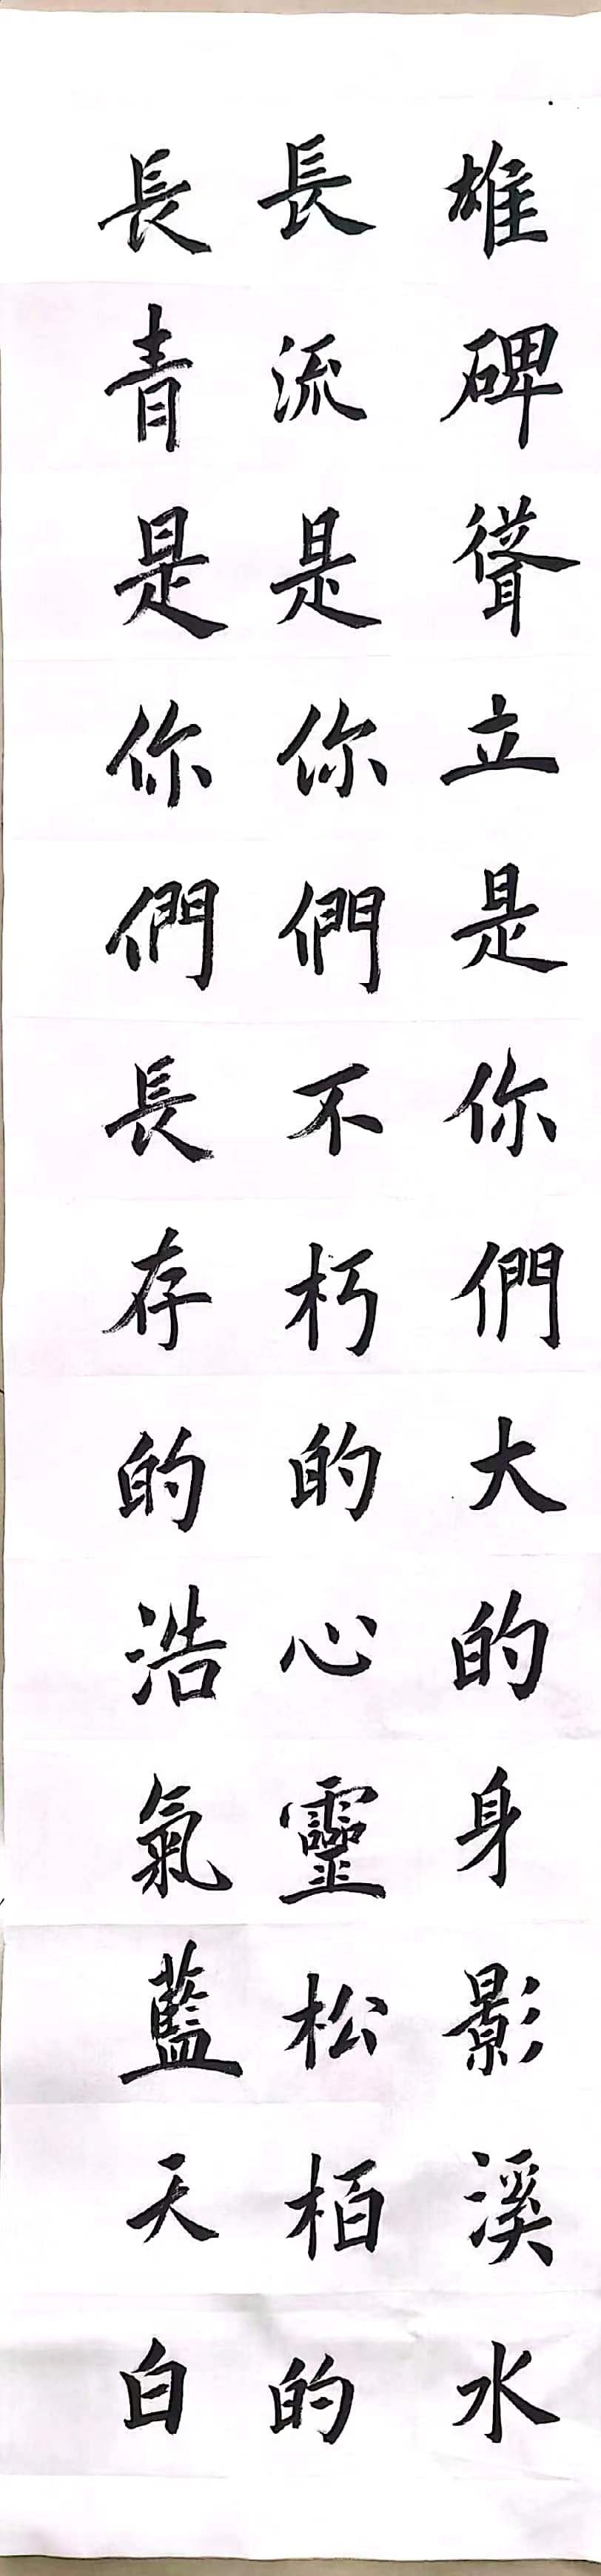 雄碑聳立是你們大的身影溪水
長流是你們不朽的心靈松栢的
長青是你們長存的浩氣藍天白